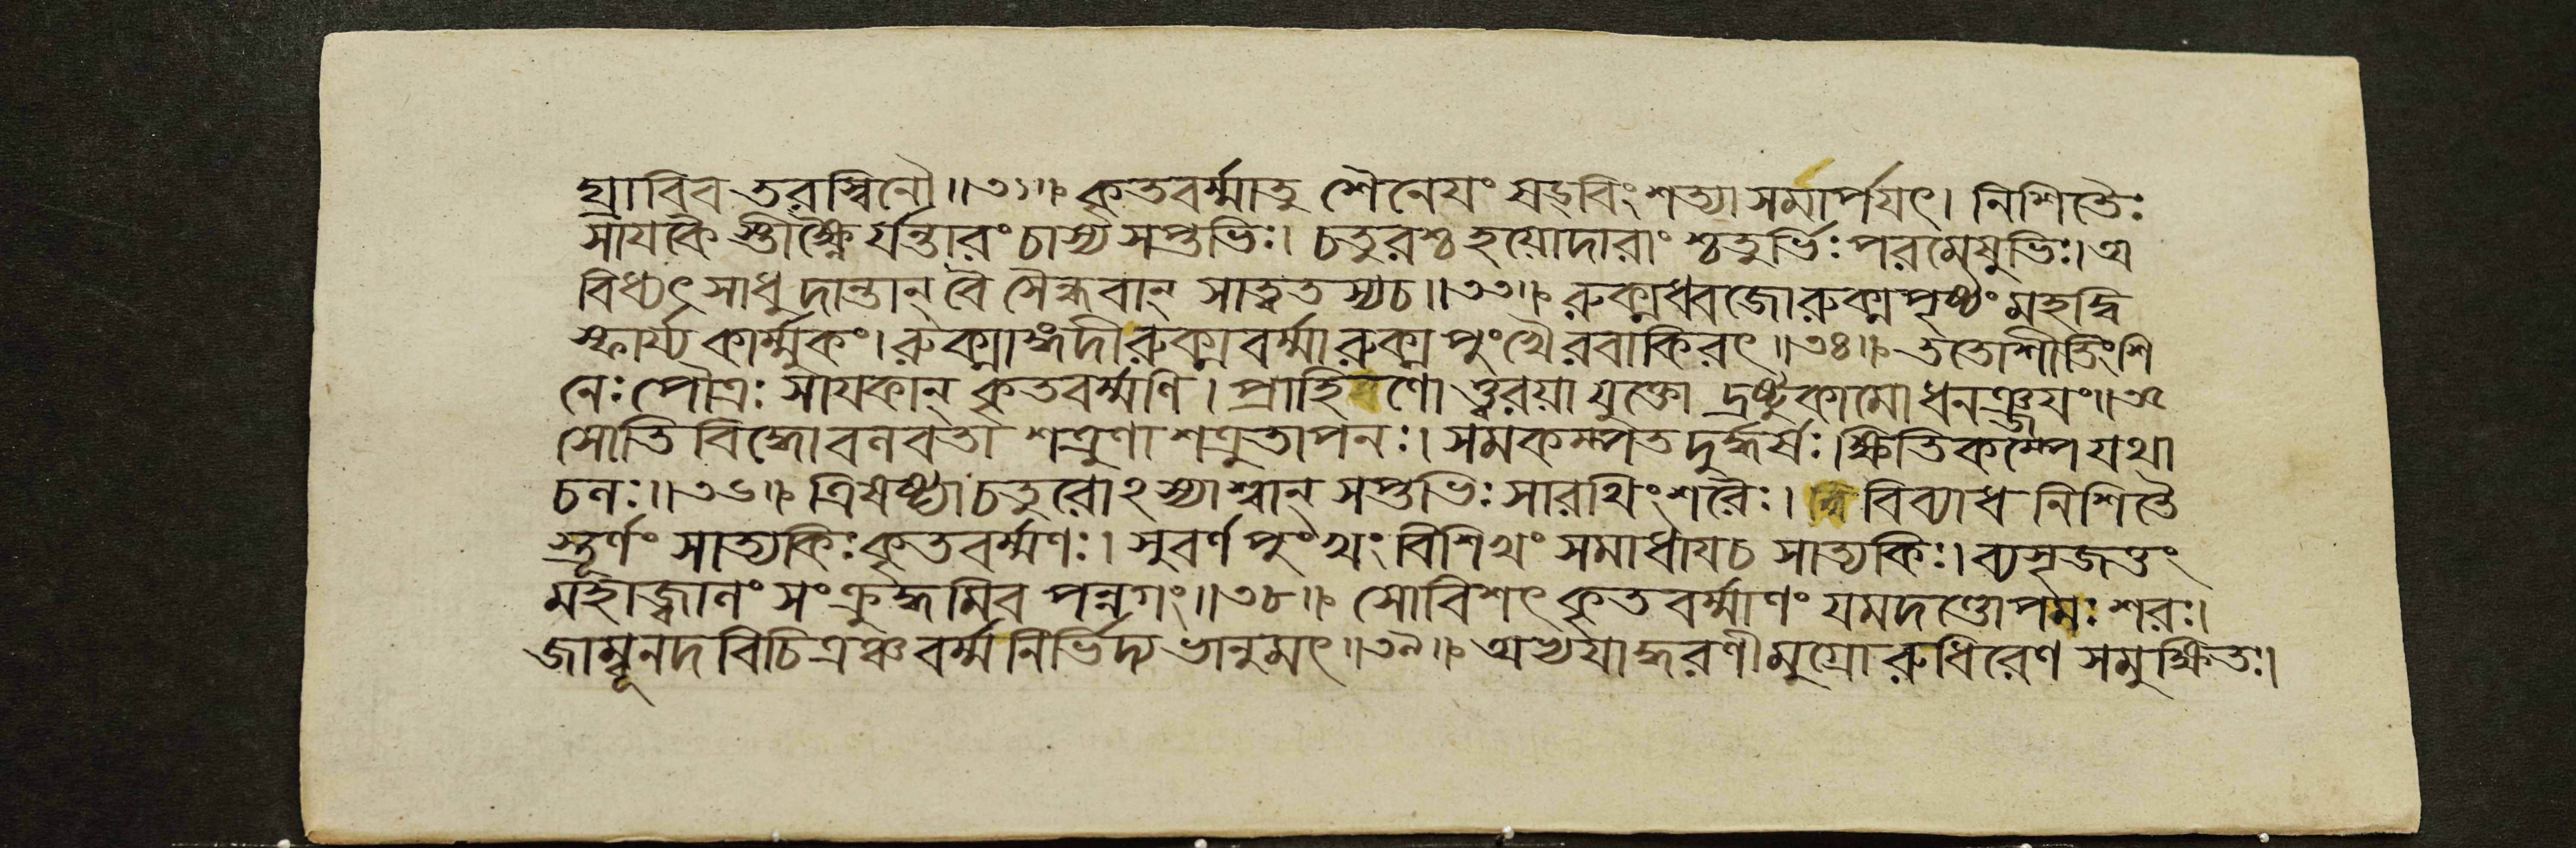 ঘ্রাবিব তরস্বিনৌ॥৩১॥ কৃতবর্ম্মাতু শৈনেযং ষড্‌বিংশত্যা সমার্পযৎ। নিশিতৈঃ
সাযকৈ স্তীক্ষ্ণৈ র্যন্তারং চাস্য সপ্তভিঃ। চতুরশ্চ হযোদারাং শ্চতুর্ভিঃ পরমেষুভিঃ। অ
বিধ্যৎ সাধু দান্তান্ বৈ সৈন্ধবান্ সাত্বতস্যচ॥৩৩॥ রুক্মধ্বজোরুক্মপৃষ্ঠং মহদ্বি
স্ফার্য্য কার্ম্মুকং। রুক্মাঙ্গদীরুক্মবর্ম্মারুক্ম পুংখৈরবাকিরৎ॥৩৪॥ ততোশীতিংশি
নেঃ পৌত্রঃ সাযকান্ কৃতবর্ম্মণি। প্রাহিণো ত্ত্বরযা যুক্তো দ্রষ্টুকামো ধনঞ্জযং॥ ৩৫
সোতি বিদ্ধোবলবতা শত্রুণা শত্রুতাপনঃ। সমকম্পত দুর্দ্ধর্ষঃ ক্ষিতিকম্পে যথা
চলঃ॥৩৬॥ ত্রিষষ্ট্যা চতুরোঽস্যাশ্বান্ সপ্তভিঃ সারথিং শরৈঃ। বিব্যাধ নিশিতৈ
স্তূর্ণং সাত্যকিঃ কৃতবর্ম্মণঃ। সুবর্ণ পুংখং বিশিখং সমাধাযচ সাত্যকিঃ। ব্যসৃজত্তং
মহাজ্বালং সংক্রুদ্ধমিব পন্নগং॥৩৮॥ সোবিশৎ কৃতবর্ম্মাণং যমদণ্ডোপমঃ শরঃ।
জাম্বূনদ বিচিত্রঞ্চ বর্ম্ম নির্ভিদ্য ভানুমৎ॥৩৯॥ অভ্যযাদ্ধরণীমুগ্রো রুধিরেণ সমুক্ষিতঃ।